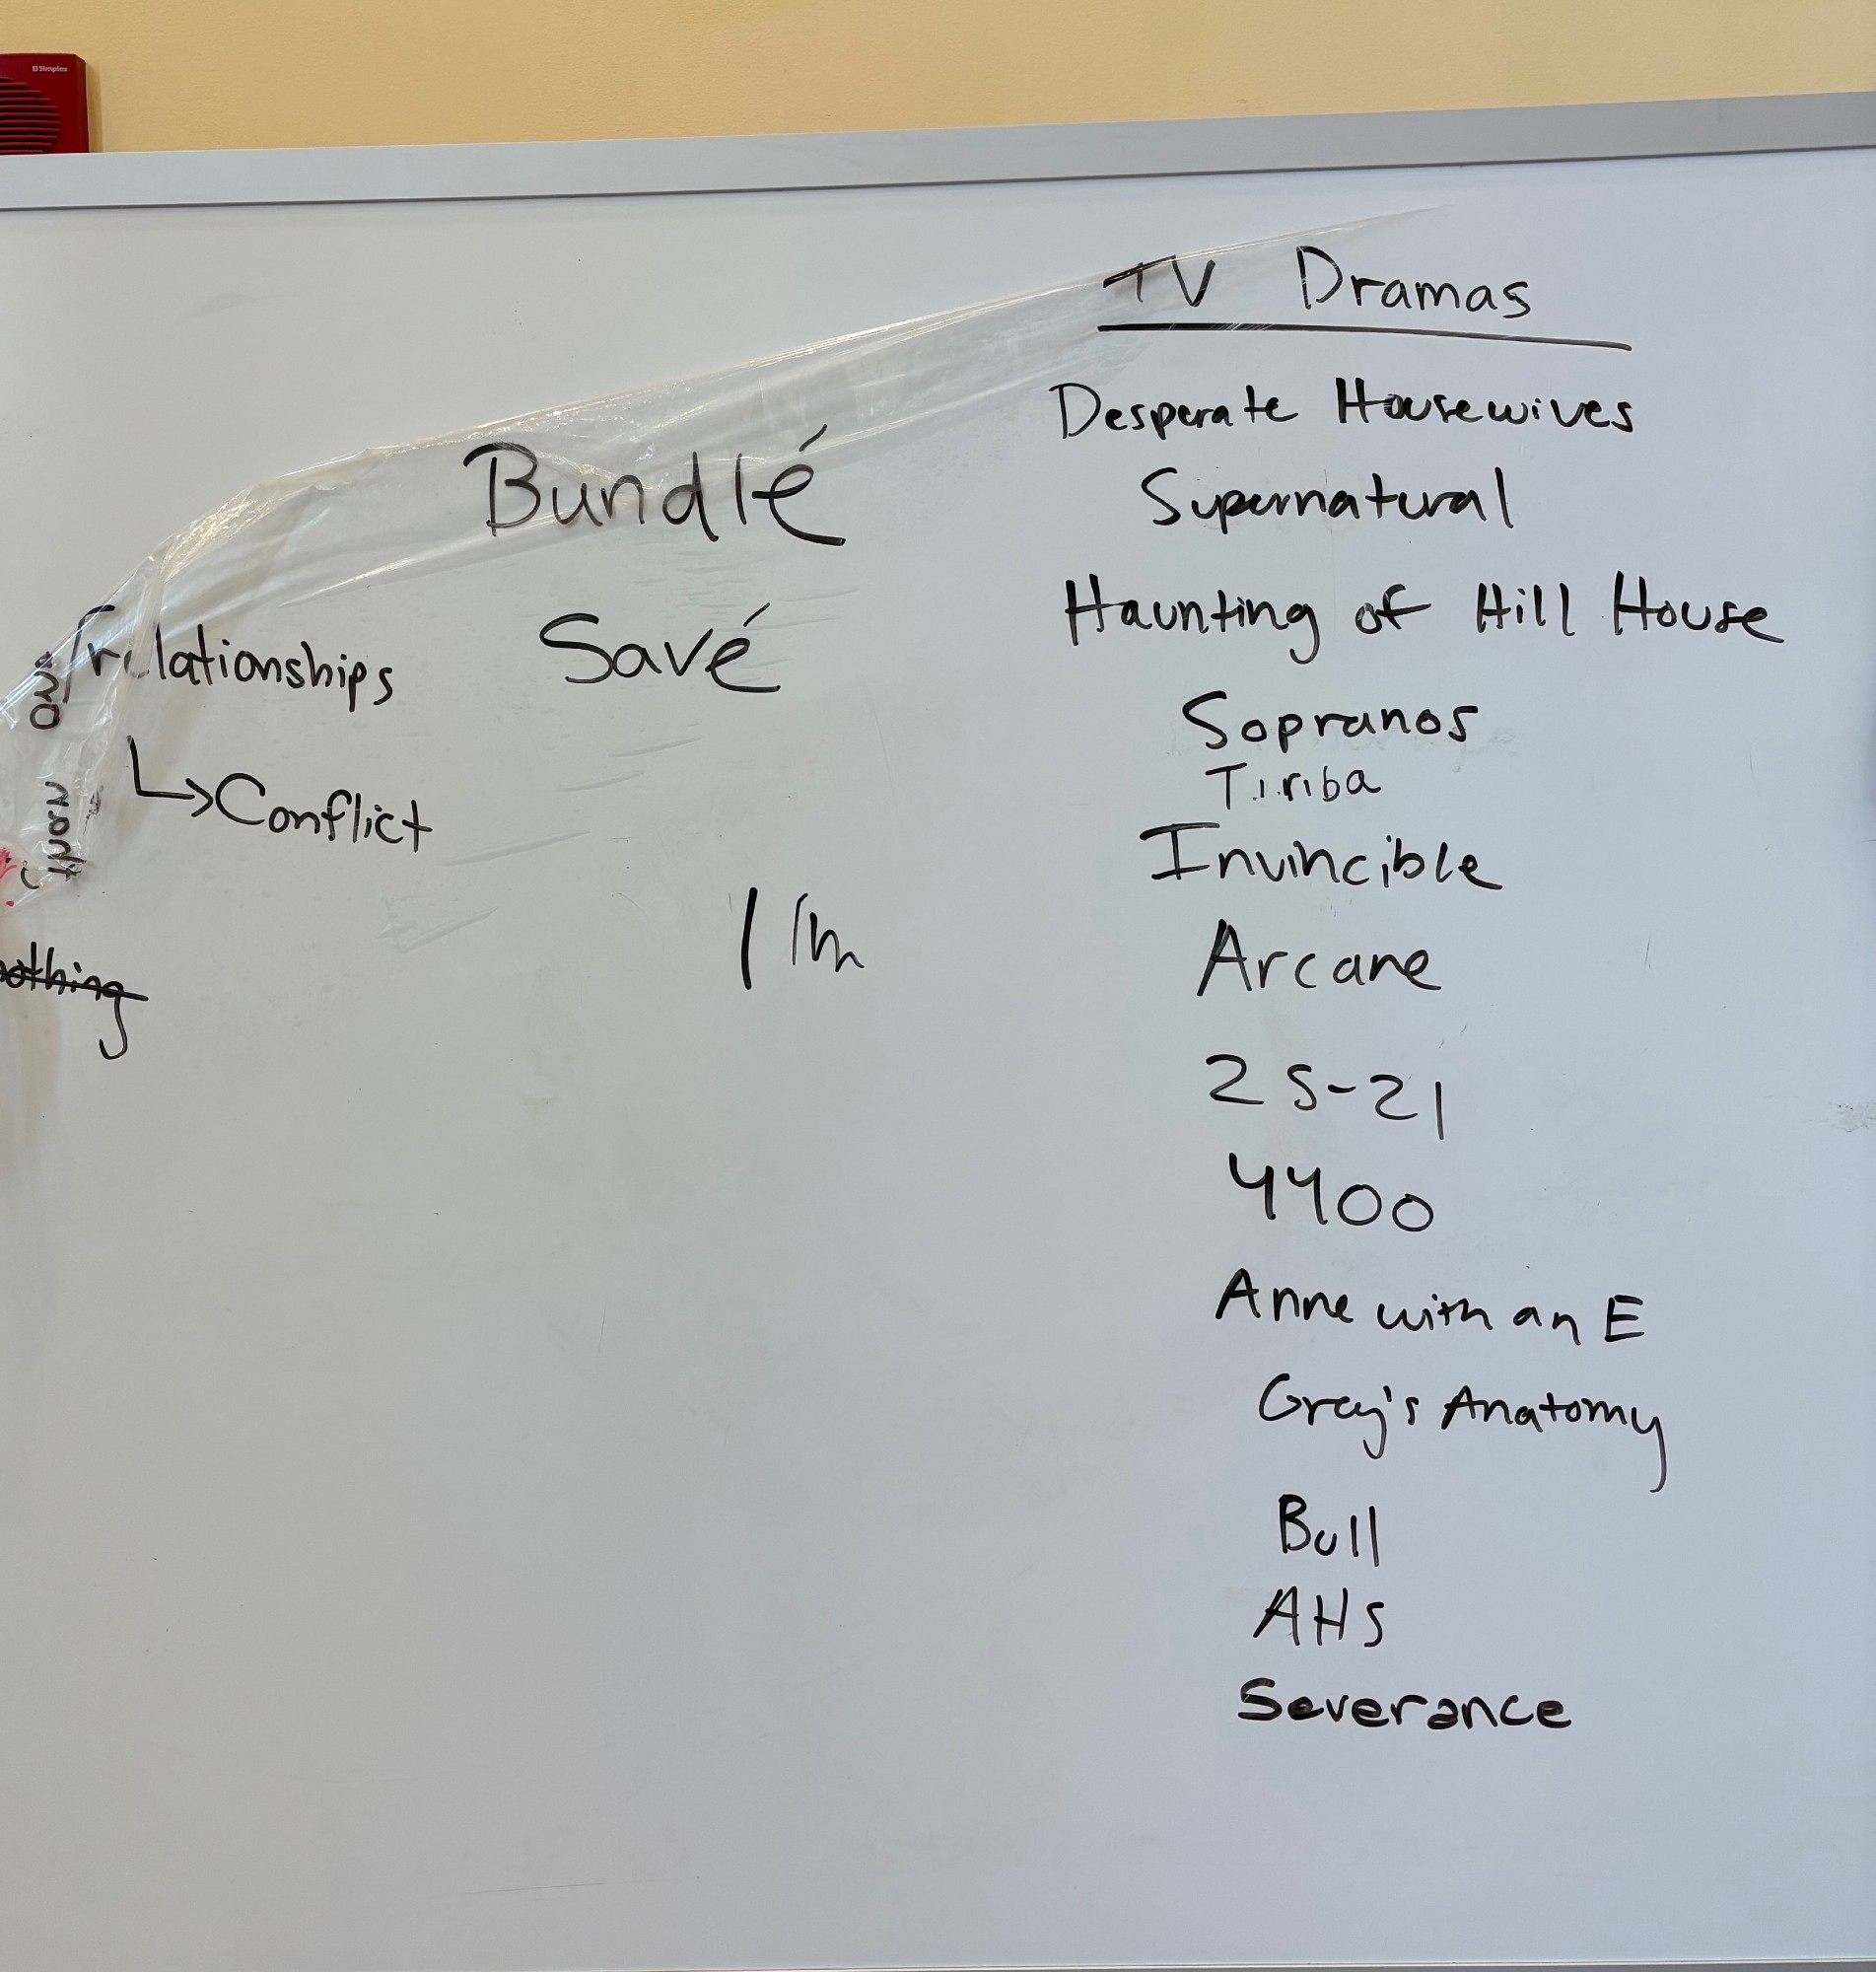 Simplex
TV Dramas
Desperate Housewives
Supernatural
Haunting of Hill House
Sopranos
Tiriba
Invincible
Arcane
25-21
4400
Anne with an E
Grey's Anatomy
Bull
AHS
Severance
Bundlé
Savé
relationships
↳Conflict